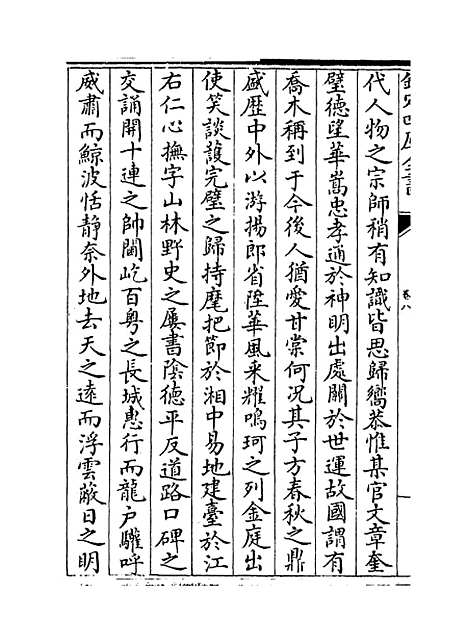 欽定四庫全書
卷八
代人物之宗師稍有知識皆思歸嚮恭惟某官文章奎
璧德望華嵩忠孝通於神明出處關於世運故國謂有
喬木稱到于今後人猶愛甘棠何况其子方春秋之鼎
盛歴中外以游揚郎省陞華風采耀鳴珂之列金庭出
使笑談護完璧之歸持麾把節於湘中易地建臺於江
右仁心撫字山林野史之屢書隂德平反道路口碑之
交誦開十連之帥閫屹百粤之長城惠行而龍户驩呼
威肅而鯨波恬静奈外地去天之逺而浮雲蔽日之明